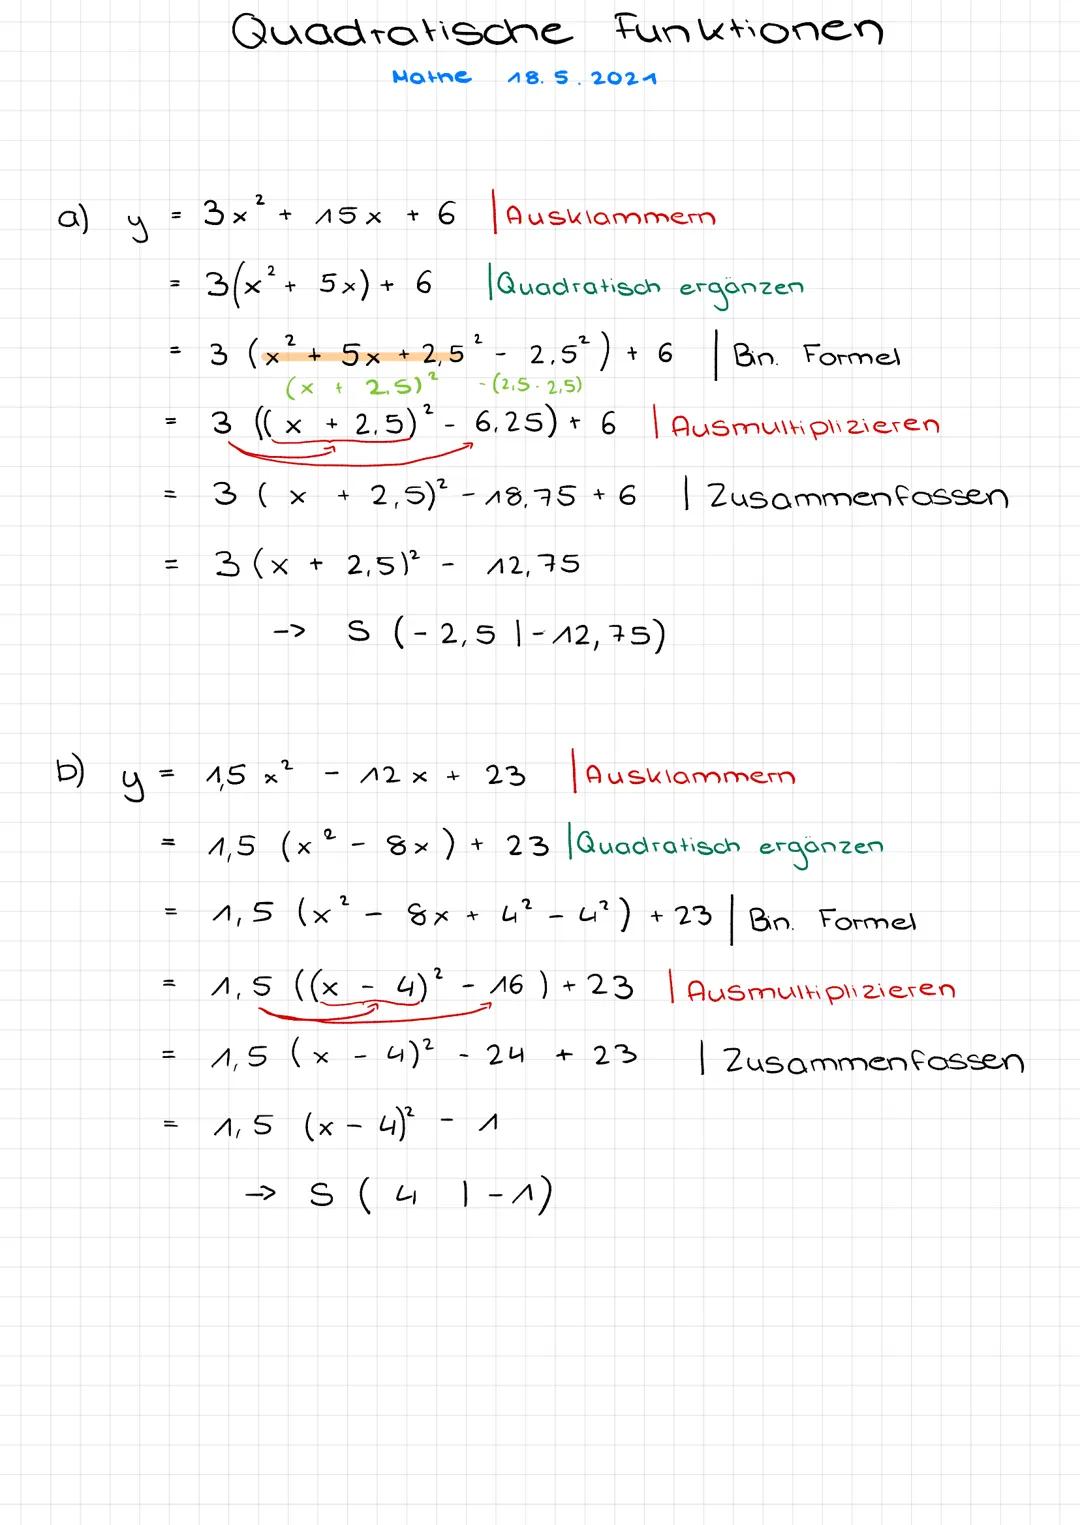 Quadratische Funktionen
Mathe 18.5.2021
a) y = 3x² + 15x + 6 | Ausklammern
= 3(x² + 5x) + 6 | Quadratisch ergänzen
= 3 (x² + 5x + 2,5² - 2,5²) + 6 | Bin. Formel
(x + 2,5)² - (2,5 · 2,5)
= 3 ((x + 2,5)² - 6,25) + 6 | Ausmultiplizieren
= 3 (x + 2,5)² - 18,75 + 6 | Zusammenfassen
= 3 (x + 2,5)² - 12,75
-> S (-2,5 | -12,75)
b) y = 1,5 x² - 12x + 23 | Ausklammern
= 1,5 (x² - 8x) + 23 | Quadratisch ergänzen
= 1,5 (x² - 8x + 4² - 4²) + 23 | Bin. Formel
= 1,5 ((x - 4)² - 16) + 23 | Ausmultiplizieren
= 1,5 (x - 4)² - 24 + 23 | Zusammenfassen
= 1,5 (x - 4)² - 1
-> S (4 | -1)